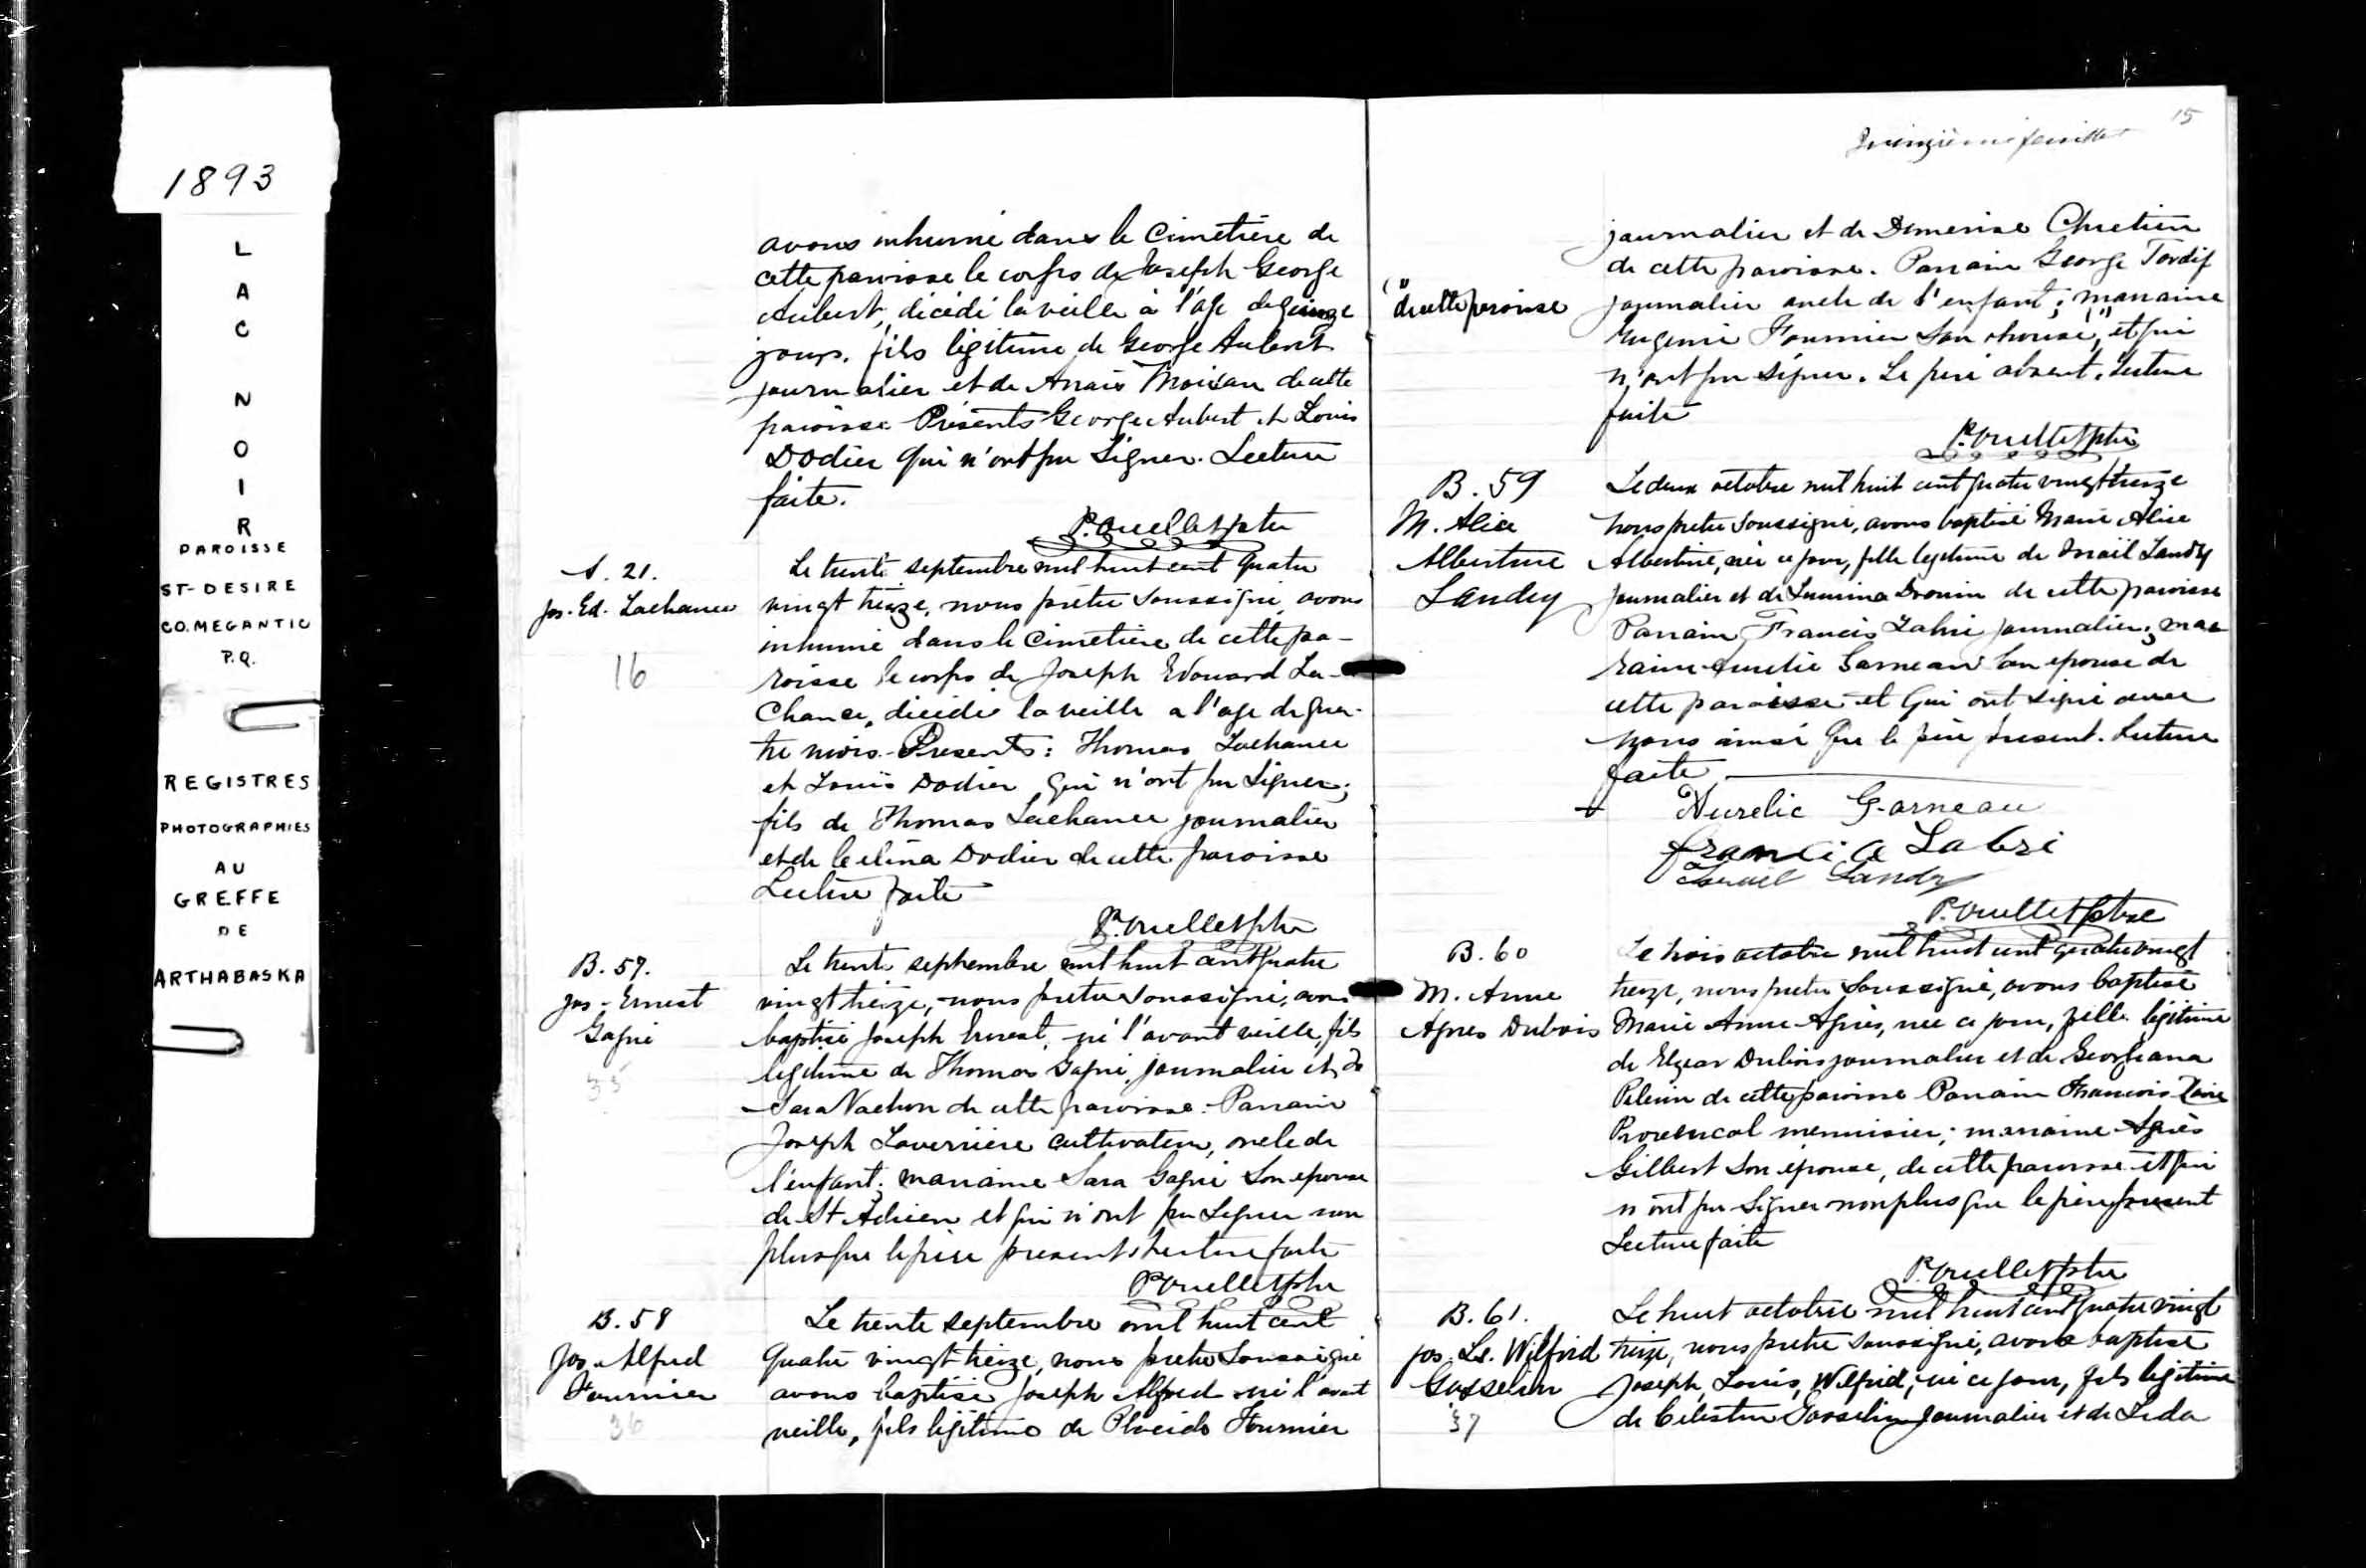 1893
L
A
C
N
O
I
R
PAROISSE
ST-DESIRE
CO. MEGANTIC
P.Q.
REGISTRES
PHOTOGRAPHIES
AU
GREFFE
DE
ARTHABASKA
avons inhumé dans le cimetière de
cette paroisse le corps de Joseph George
Aubert, décédé la veille à l'age de quinze
jours. fils légitime de George Aubert
journalier et de Anais Moisan de cette
paroisse Présents George Aubert et Louis
Dodier qui n'ont pu signer. Lecture
faite.
P. Ouellet ptre
S. 21.
Jos. Ed. Lachance
16
Le trente septembre mil huit cent quatre
vingt treize, nous prêtre soussigné avons
inhumé dans le cimetière de cette pa-
roisse le corps de Joseph Edouard La-
Chance, décédé la veille a l'age de qua-
tre mois. Presents: Thomas Lachance
et Louis Dodier qui n'ont pu signer;
fils de Thomas Lachance journalier
et de Celina Dodier de cette paroisse
Lecture faite
P. Ouellet ptre
B. 57.
Jos-Ernest
Gagné
35
Le trente septembre mil huit cent quatre
vingt treize, nous pretre soussigné, avons
baptisé Joseph Ernest, né l'avant veille, fils
legitime de Thomas Gagné journalier et de
Sara Vachon de cette paroisse. Parrain
Joseph Laverrière cultivateur, oncle de
l'enfant; marraine Sara Gagné son epouse
de St Adrien et qui n'ont pu signer non
plus que le père present. Lecture faite
P Ouellet ptre
B. 58
Jos. Alfred
Fournier
36
Le trente septembre mil huit cent
quatre vingt treize, nous pretre soussigné
avons baptisé Joseph Alfred né l'avant
veille, fils légitime de Placide Fournier
15
Quinzième feuillet
journalier et de Demerise Chretien
de cette paroisse. Parrain George Tardif
journalier oncle de l'enfant; marraine
"de cette paroisse
Eugenie Fournier son épouse," et qui
n'ont pu signer. Le père absent. Lecture
faite
P. Ouellet ptre
B. 59
M. Alice
Albertine
Landry
Le deux octobre mil huit cent quatre vingt treize
nous pretre soussigné, avons baptisé Marie Alice
Albertine, née ce jour, fille legitime de Israil Landry
journalier et de Lumina Drouin de cette paroisse
Parrain Francis Labri journalier; mar
raine Aurelie Garneau son epouse de
cette paroisse et qui ont signé avec
nous ainsi que le père present. Lecture
faite
Aurelie Garneau
francis Labri
Israel Landry
P. Ouellet ptre
B. 60
M. Anne
Agnes Dubois
Le trois octobre mil huit cent quatre vingt
treize, nous pretre soussigné, avons baptisé
Marie Anne Agnès, née ce jour, fille légitime
de Elzear Dubois journalier et de Georgiana
de cette paroisse Parrain Francois
Provencal menuisier; marraine Agnès
Gilbert son épouse, de cette paroisse et qui
n'ont pu signer non plus que le père present
Lecture faite
P. Ouellet ptre
B. 61.
Jos. Ls. Wilfrid
Gosselin
37
Le huit octobre mil huit cent quatre vingt
treize, nous pretre soussigné, avons baptisé
Joseph, Louis, Wilfrid, né ce jour, fils légitime
de Celestin Gosselin journalier et de Leda